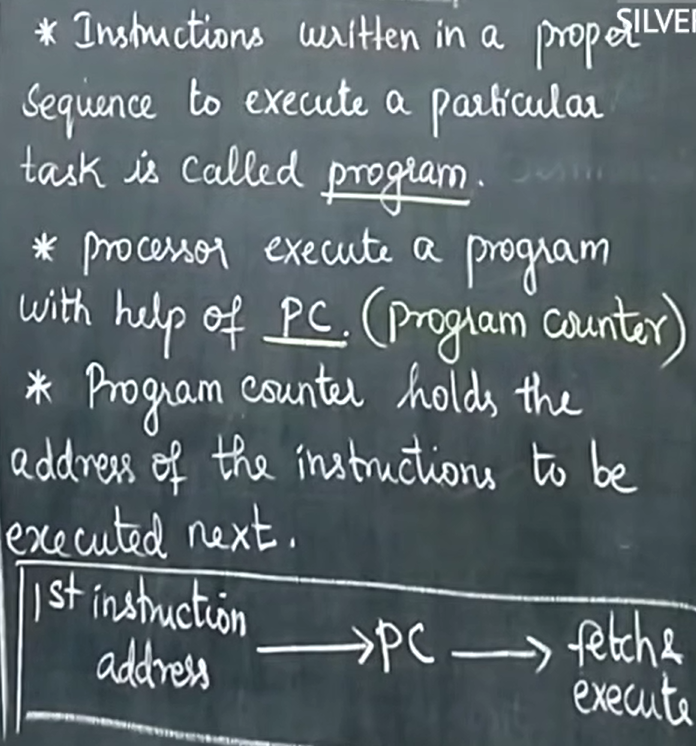 SILVE
* Instructions written in a proper
sequence to execute a particular
task is called program.
* processor execute a program
with help of PC. (program counter)
* Program counter holds the
address of the instructions to be
executed next.
1st instruction
address → PC → fetch &
execute